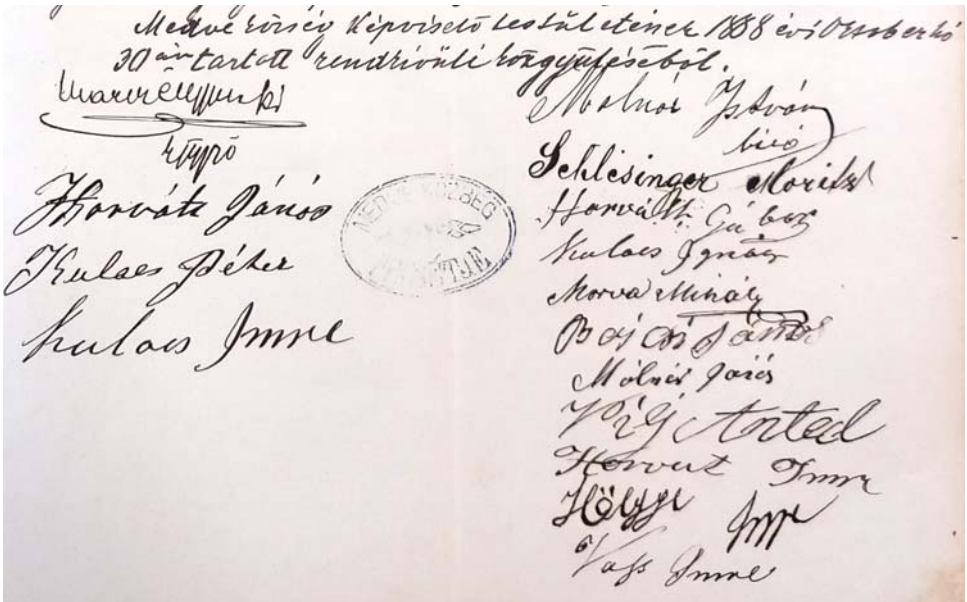 Medve község képviselő testületének 1888 évi Octoberhó
30án tartott rendkivüli közgyüléséből.
jegyző
Horváth János
Kulacs Péter
Kulacs Imre
MEDVE KÖZSÉG
Molnár István
biró
Schlesinger Moritz
Horváth Gábor
Kulacs Ignác
Morva Mihály
János
Molnár János
Víg Antal
Horvut Imre
Hölgye
Vass Imre